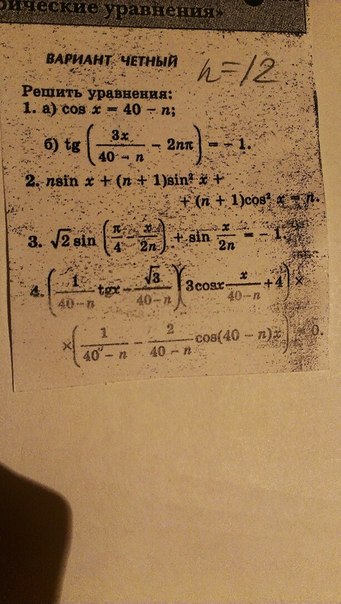 рические уравнения»
ВАРИАНТ ЧЕТНЫЙ n=12
Решить уравнения:
1. а) cos x = 40 − n;
б) tg (3x/(40 − n) − 2nπ) = − 1.
2. nsin x + (n + 1)sin² x +
+ (n + 1)cos² x = n.
3. √2 sin (π/4 − x/2n) + sin x/2n = − 1.
4. (1/(40−n) tgx − √3/(40−n)) (3cosx x/(40−n) + 4) ×
×(1/(40 − n) − 2/(40 − n) cos(40 − n)x) = 0.